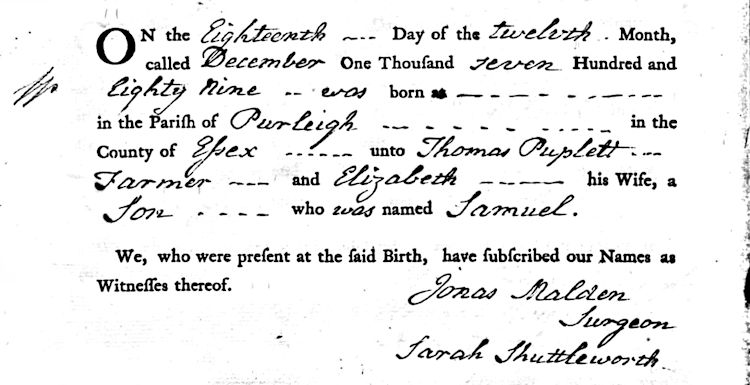 ON the Eighteenth ---- Day of the twelvth. Month,
called December One Thouſand seven Hundred and
Eighty Nine -- was born at - - - - - - - - -
in the Pariſh of Purleigh - - - - - - - - - in the
County of Eſsex ------ unto Thomas Puplett ---
Farmer --- and Elizabeth ------ his Wife, a
Son - - - - who was named Samuel.
We, who were preſent at the ſaid Birth, have ſubſcribed our Names as
Witneſſes thereof.
Jonas Malden
Surgeon
Sarah Shuttleworth